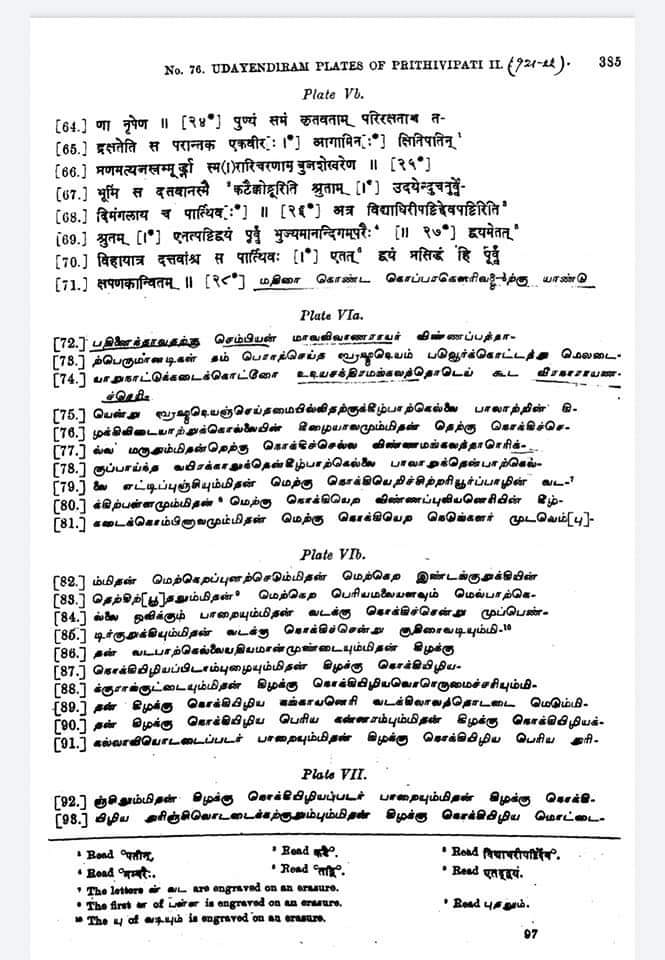 No. 76. UDAYENDIRAM PLATES OF PRITHIVIPATI II. (921-22). 385
Plate Vb.
[64.] णा नृपेण ॥ [२४*] पुण्यं समं कृतवताम् परिरक्षताञ्च त-
[65.] द्रक्षतेति स परान्तक एकवीर[ः ।*] आगामिन[ः*] क्षितिपतिन्¹
[66.] प्रणमत्यजस्रम्मूर्द्ध्ना स्म(ा)रारिचरणाम्बुजशेखरेण ॥ [२५*]
[67.] भूमि स दतवानस्मै ²कटैक्कोट्टूरिति श्रुताम् [।*] उदयेन्दुचतुर्व्वे-
[68.] दिमंगलाय च पार्त्थिव[ः*] ॥ [२६*] अत्र विद्याधिरीपट्टिद्देवपट्टिरिति³
[69.] श्रुतम् [।*] एनत्पट्टिद्वयं पूर्व्वं भुज्यमानन्दिगम्परैः⁴ [॥ २७*] द्वयमेतत्⁵
[70.] विहायात्र दत्तवांश्च स पार्त्थिवः [।*] एतत्⁶ द्वयं प्रसिद्धं हि पूर्व्वं
[71.] क्षपणकान्वितम् ॥ [२८*] மதிரை கொண்ட கொப்பரகெஸரிவ யாண்டு
Plate VIa.
[72.] பதினைந்தாவதற்கு செம்பியன் மாவலிவாணராயர் விண்ணப்பத்தா-
[73.] ற்பெருமானடிகள் தம் பொரற்செய்த படுவூர்க்கொட்டத்து மெலடை-
[74.] யாறுநாட்டுக்கடைக்கொட்டூரை உதியசந்திரமங்கலத்தொடெய் கூட விரநாராயண-
ச்செரி-
[75.] யென்று இதற்குக்கிழ்பாற்கெல்லை பாலாற்றின் கி-
[76.] ழக்கில்விடையாற்றுக்கொல்லையின் கிழையாலமும்மிதன் தெற்கு நொக்கிச்செ-
[77.] ல்ல மருதும்மிதன்றெற்கு நொக்கிச்செல்ல விண்ணமங்கலத்தாரெரிக்-
[78.] குப்பாய்ந்த வயிரக்காலுக்தென்கிழ்பாற்கெல்லை பாலாறுக்தென்பாற்கெல்-
[79.] லை எட்டிப்புஞ்சியும்மிதன் மெற்கு நொக்கியெறிச்சிற்றரியூர்ப்பாழின் வட-⁷
[80.] க்கிற்பள்ளமும்மிதன்⁸ மெற்கு நொக்கியெற விண்ணப்புலியனெரியின் கிழ்-
[81.] கடைக்கொம்பினாவலும்மிதன் மெற்கு நொக்கியெற நெடுங்களர் முடவெம்[பு]-
Plate VIb.
[82.] ம்மிதன் மெற்கெறப்புளற்செடும்மிதன் மெற்கெற இண்டங்குறுக்கியின்
[83.] தெற்கிற்[பூ]தலும்மிதன்⁹ மெற்கெற பெரியமலையளவும் மெல்பாற்கெ-
[84.] ல்லை ஒலிக்கும் பாறையும்மிதன் வடக்கு நொக்கிச்சென்று முப்பெண்-
[85.] டிர்குறுக்கியும்மிதன் வடக்கு நொக்கிச்சென்று குதிரைவடியும்மி-¹⁰
[86.] தன் வடபாற்கெல்லையதியமான்முண்டையும்மிதன் கிழக்கு
[87.] நொக்கியிழியப்பிடாம்புழையும்மிதன் கிழக்கு நொக்கியிழிய-
[88.] க்குராங்குட்டையும்மிதன் கிழக்கு நொக்கியிழியவொருமைச்சரியும்மி-
[89.] தன் கிழக்கு நொக்கியிழிய கங்காயனெரி வடக்கிலாவத்தொட்டை மெடும்மி-
[90.] தன் கிழக்கு நொக்கியிழிய பெரிய கள்ளரம்பும்மிதன் கிழக்கு நொக்கியிழியக்-
[91.] கல்லாலியொடடைப்படர் பாறையும்மிதன் கிழக்கு நொக்கியிழிய பெரிய அரி-
Plate VII.
[92.] ஞ்சிலும்மிதன் கிழக்கு நொக்கியிழியப்படர் பாறையும்மிதன் கிழக்கு நொக்கி-
[93.] யிழிய அரிஞ்சிலொடடைக்கற்குறும்பும்மிதன் கிழக்கு நொக்கியிழிய மொட்டை-
¹ Read °पतीन्. ² Read कडै°. ³ Read विद्याधरीपट्टिर्देव°.
⁴ Read °म्बरैः. ⁵ Read °तद्धि°. ⁶ Read एतद्द्वयं.
⁷ The letters ள் வட are engraved on an erasure.
⁸ The first ள of பள்ள is engraved on an erasure. ⁹ Read புதலும்.
¹⁰ The யு of வடியும் is engraved on an erasure.
97